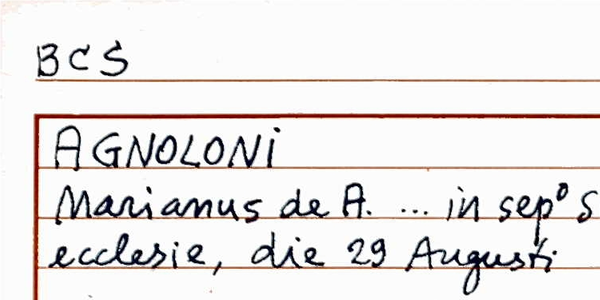 BCS
AGNOLONI
Marianus de A. ... in sepº S
ecclesie, die 29 Augusti